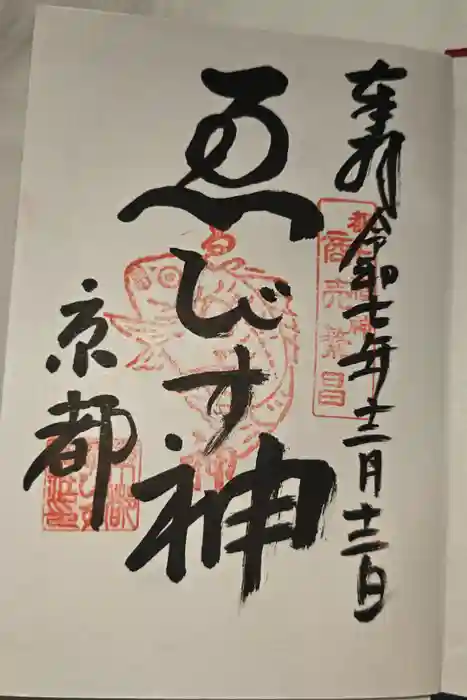 奉拝 令和七年十二月十三日
商売繁昌
ゑびす神
京都